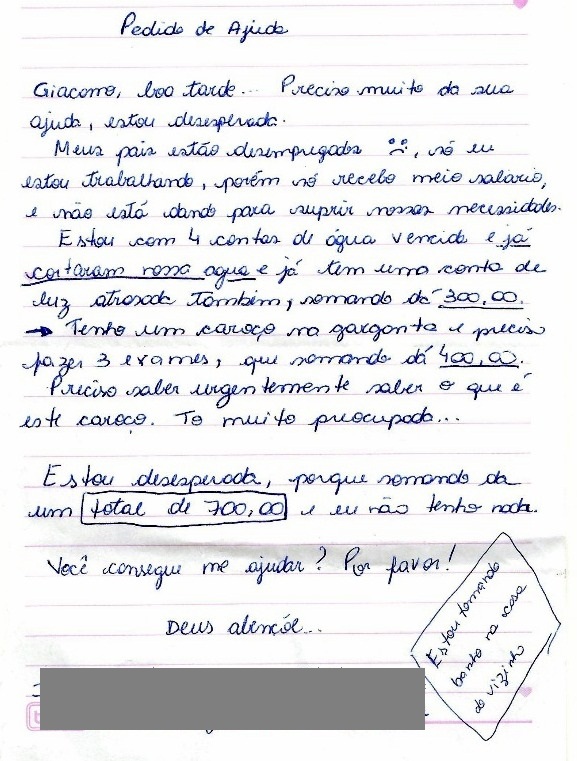 Pedido de Ajuda
Giacomo, boa tarde... Preciso muito da sua
ajuda, estou desesperada.
Meus pais estão desempregados :(, só eu
estou trabalhando, porém só recebo meio salário,
e não está dando para suprir nossas necessidades.
Estou com 4 contas de água vencida e já
cortaram nossa agua e já tem uma conta de
luz atrasada também, somando dá 300,00.
→ Tenho um caroço na garganta e preciso
fazer 3 exames, que somando dá 400,00.
Preciso saber urgentemente saber o que é
este caroço. To muito preocupada...
Estou desesperada, porque somando da
um total de 700,00 e eu não tenho nada.
Você consegue me ajudar? Por favor!
Deus abençõe...
Estou tomando
banho na casa
do vizinho